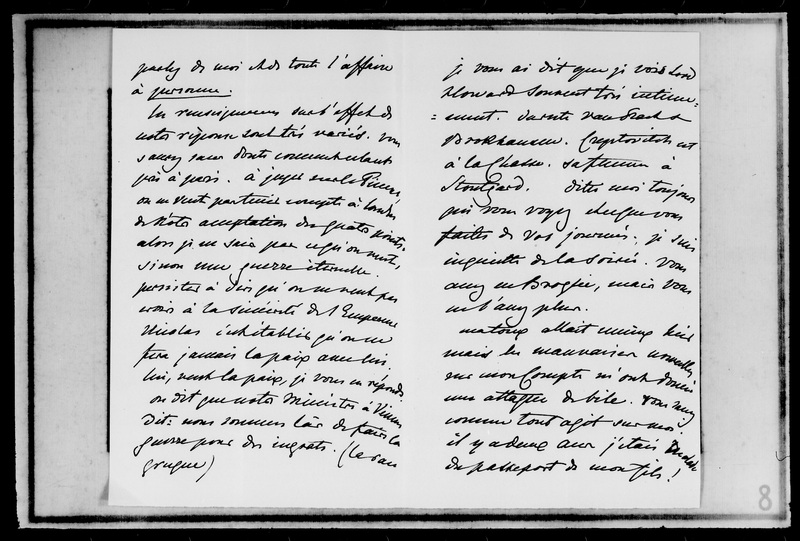 parlez de moi et de toute l'affaire
à personne.
les renseignemens sur l'effet de
notre réponse sont très variés. vous
saurez sans doute comment
pas à paris. à juger
on ne veut pas tenir compte à Londres
de notre acceptation des quatre points.
alors je ne sais pas ce qu'on veut,
sinon une guerre éternelle.
persister à dire qu'on ne veut pas
croire à la sincérité de l'Empereur
Nicolas c'est établir qu'on ne
fera jamais la paix avec lui.
lui, veut la paix, je vous en réponds.
on dit que notre Ministre à Vienne
dit: nous sommes las de faire la
guerre pour des ingrats. (le
je vous ai dit que je vois Lord
Howard souvent très intime=
=ment. & 
Brokhausen. Creptovitch est
à la Chasse. sa femme à
Stoutgard. dites moi toujours
qui vous voyez et ce que vous
faites de vos journées, je suis
inquiette de la soirée. vous
avez eu Broglie, mais vous
ne l'avez plus.
ma toux allait mieux hier
mais les mauvaises nouvelles
sur mon Compte m'ont donné
une attaque de bile. vous savez
comme tout agit sur moi.
il y a deux ans j'étais
du passeport de mon fils!
8